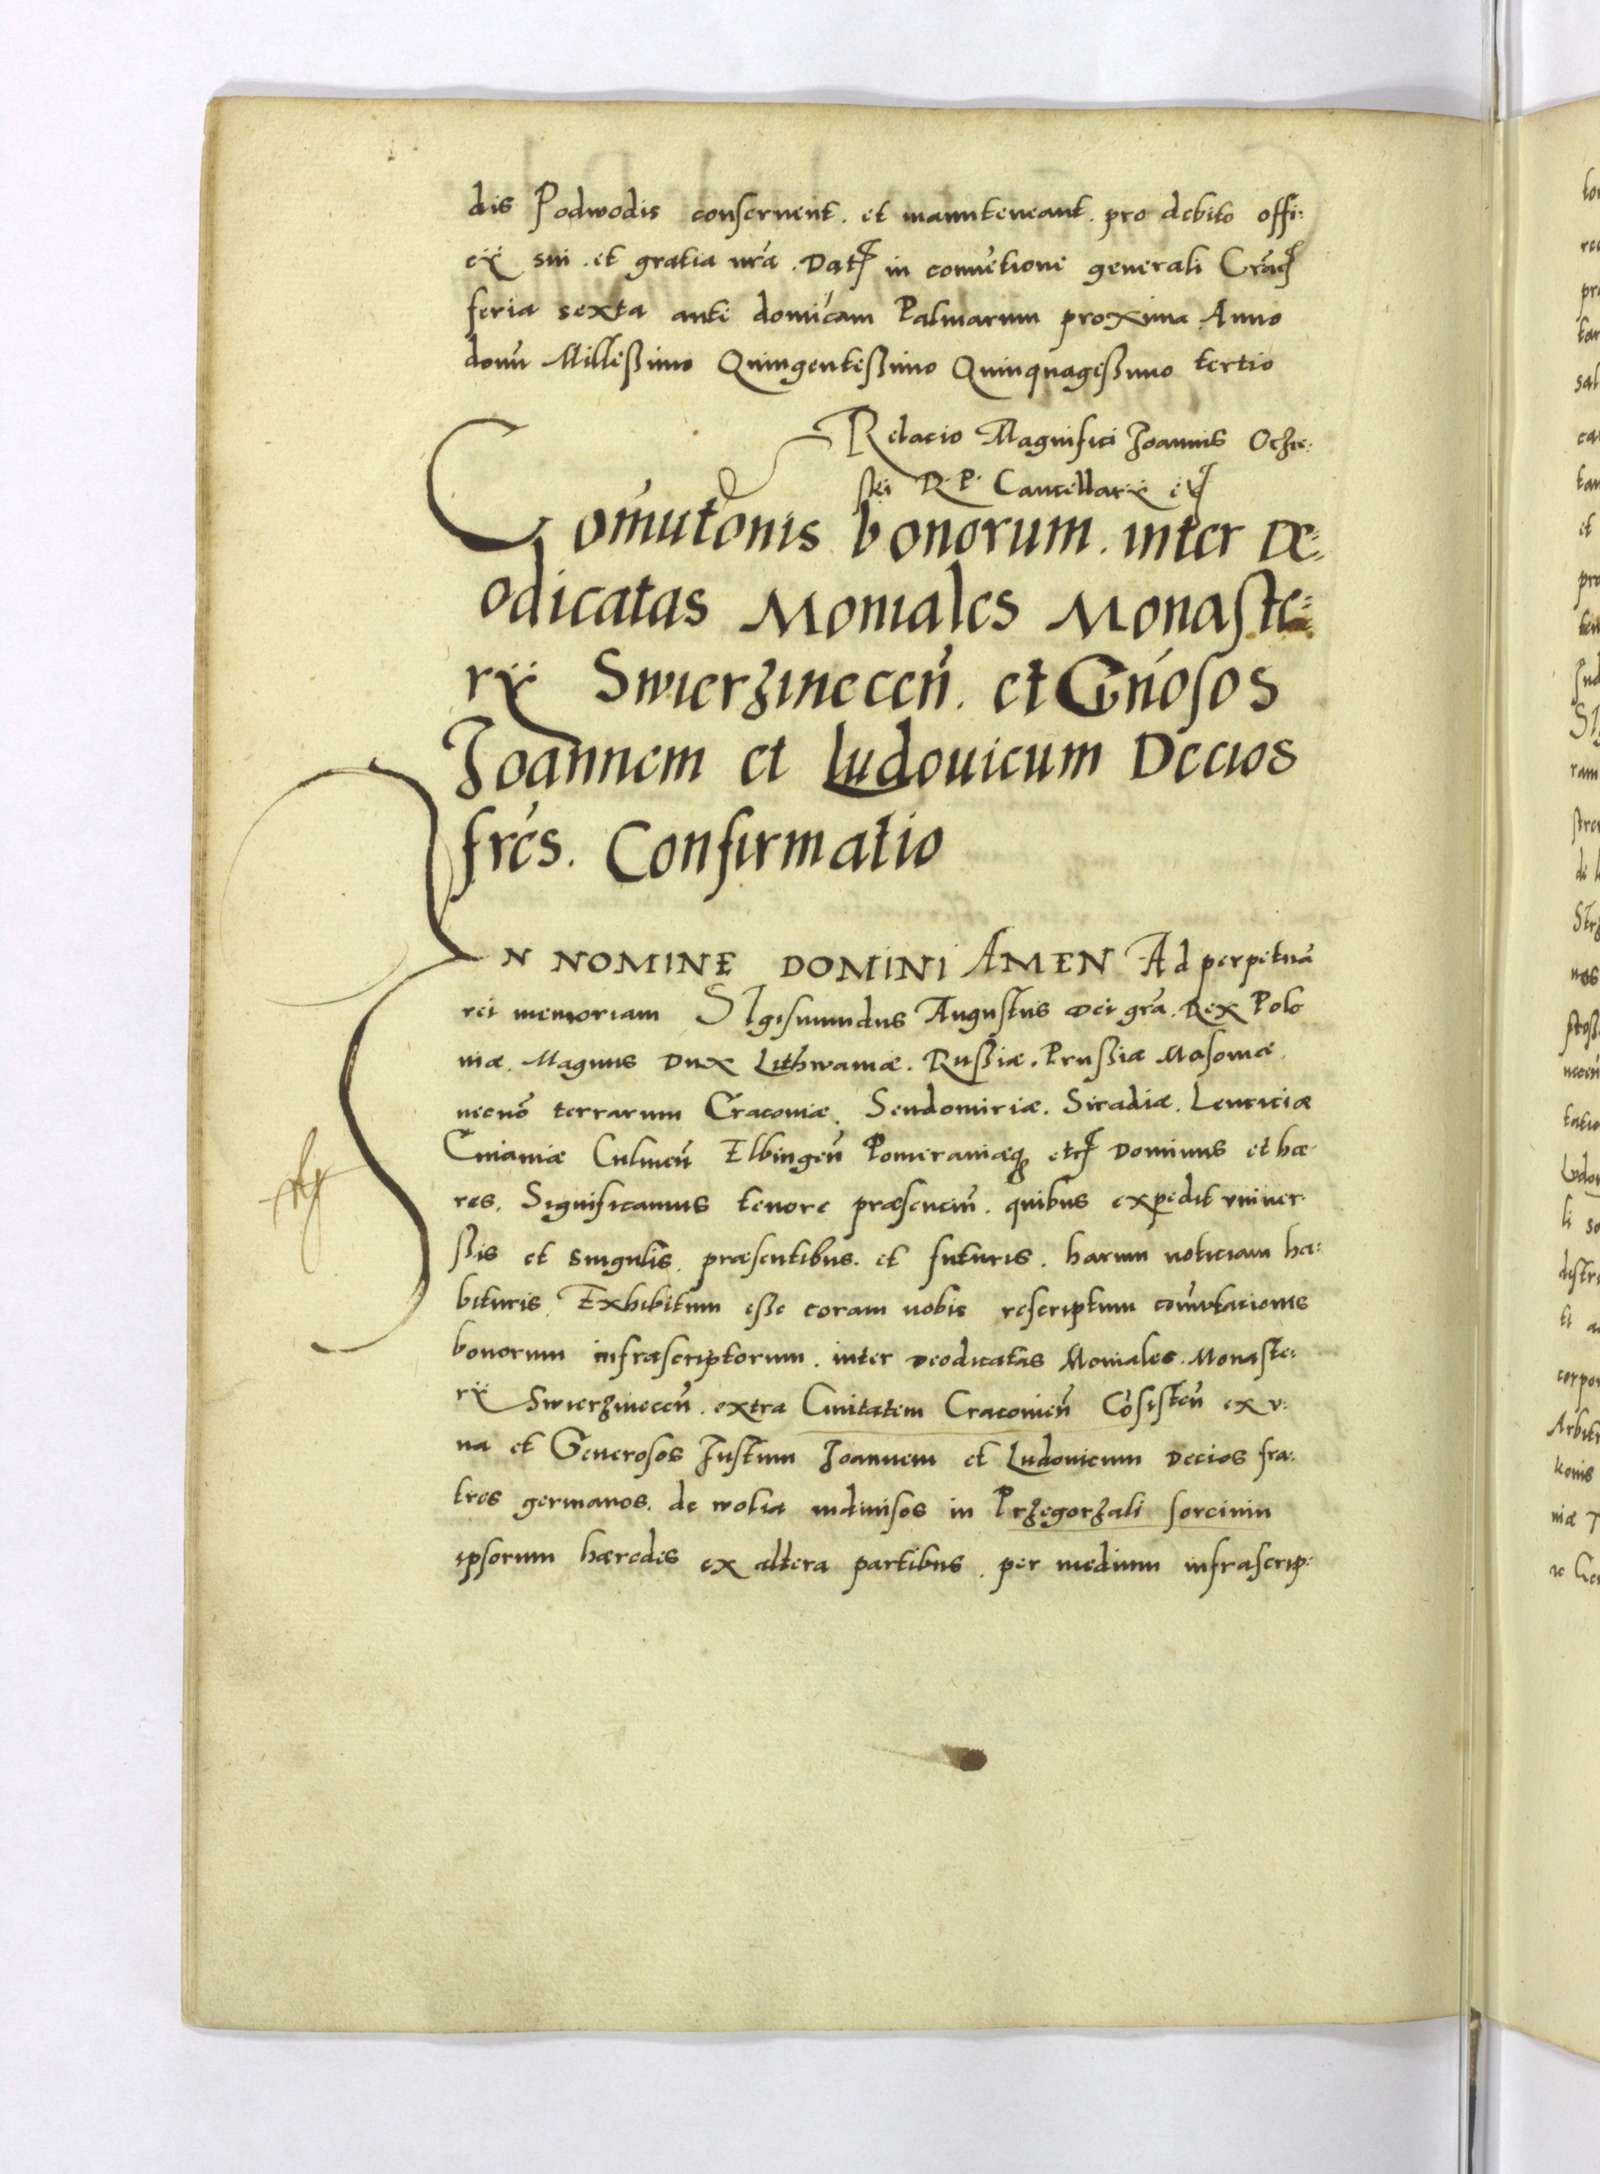 dis Podwodis conservent . et manuteneant . pro debito offi:
cij sui . et gratia nr̃a . Dat̃ in conuẽtione generali Crac̃
feria sexta ante domĩcam Palmarum proxima Anno
domĩ Millesſimo Quingentesſimo Quinquagesſimo tertio
Relacio Magnifici Joannis Oczie:
ski R. P. Cancellarij etc̃
Com̃utõnis bonorum . inter De:
odicatas Moniales Monaſte:
rij Swierzinecen̄ . et Gn̄osos
Joannem et Ludouicum Decios
fr̃es . Confirmatio
IN NOMINE DOMINI AMEN Ad perpetuã
rei memoriam SIgiſmundus Auguſtus Dei gr̃a . Rex Polo
niæ . Magnus Dux Lithwaniæ . Rusſiæ . Prusſiæ Maſoniæ .
necnõ terrarum Cracoviæ . Sendomiriæ . Siradiæ . Lenciciæ
Cuiaviæ Culmen̄ Elbingen̄ Pomeraniæq3 etc̃ Dominus et hæ-
res . Significamus tenore præsenciũ . quibus expedit vniuer-
sis et singulis . præsentibus . et futuris . harum noticiam ha:
bituris . Exhibitum esſe coram nobis reſcriptum com̃utacionis
bonorum infraſcriptorum . inter Deodicatas Moniales . Monaſte:
rij Swierzinecen̄ . extra Ciuitatem Cracovien̄ Cõsiſten̄ ex v:
na et Generosos Juſtum Joannem et Ludovicum Decios fra:
tres germanos . de wolia indiuisos in Przegorzali sorcium
ipsorum hæredes ex altera partibus . per medium infraſcrip: